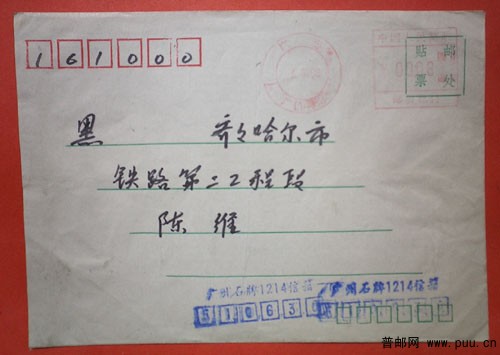 161000
贴 邮
票 处
黑 齐々哈尔市
铁路第二工程段
陈维
广州石牌1214信箱
广州石牌1214信箱
510630
普邮网 www.puu.cn